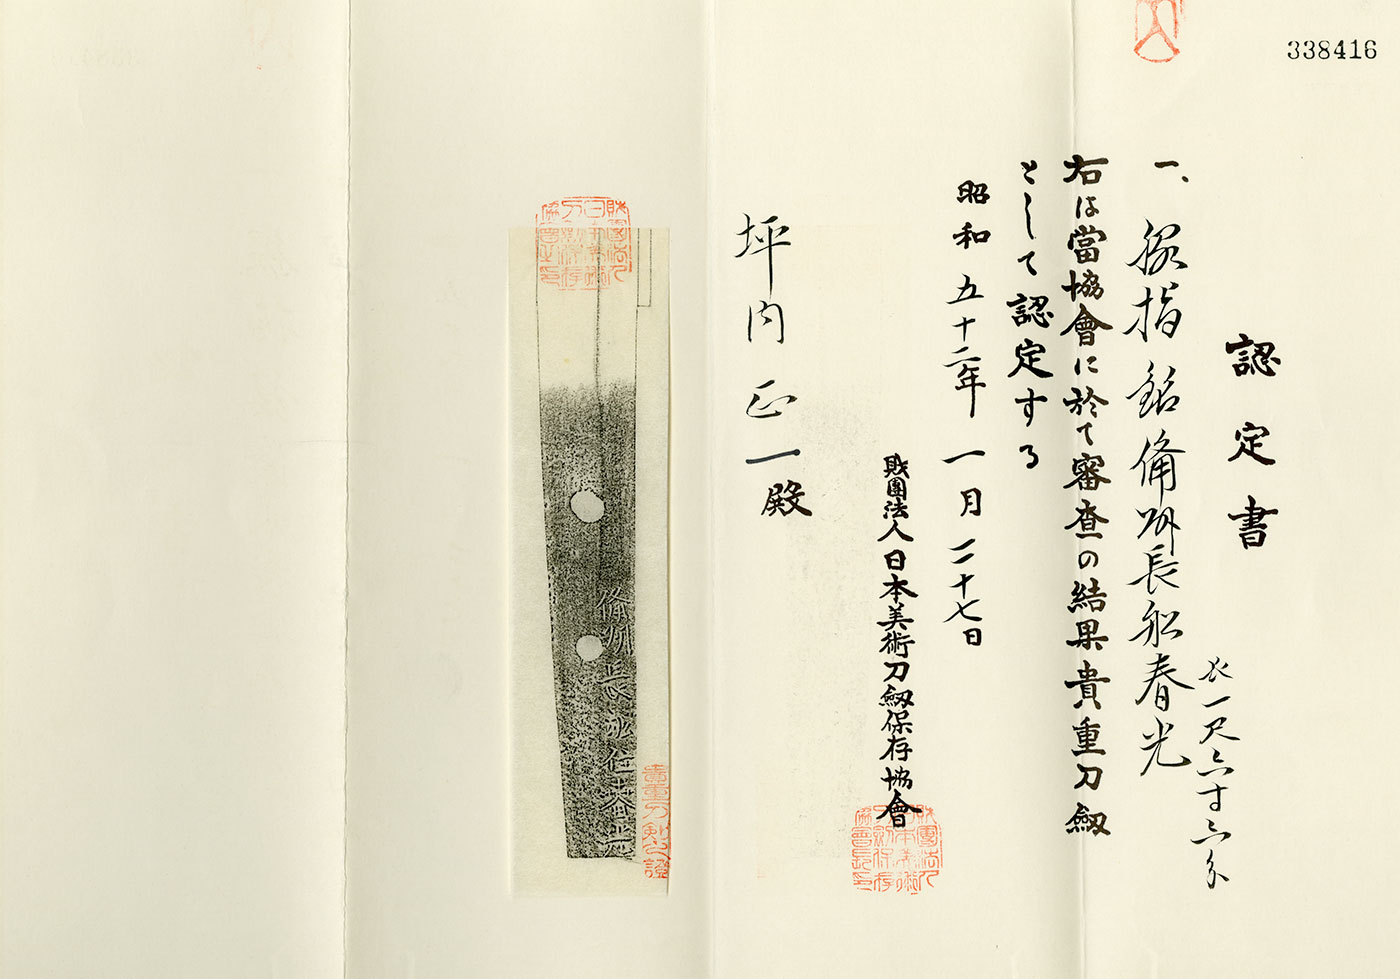 338416
認定書
一、脇指 銘 備州長船春光
長一尺六寸六分
右は當協會に於て審査の結果貴重刀劔
として認定する
昭和五十二年一月二十七日
財團法人日本美術刀劔保存協會
坪内正一殿
備州長船住春光
貴重刀剣之證